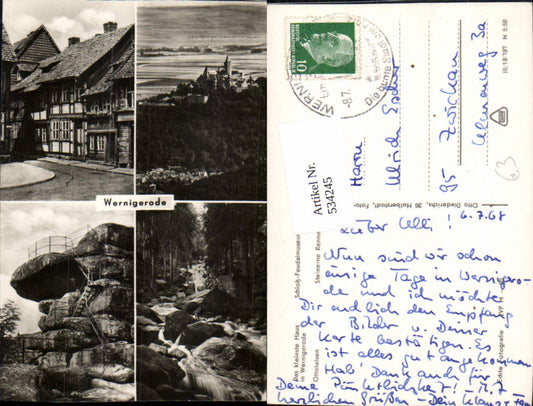 Wernigerode
Artikel Nr.
534245
10
WERNI
Die bunte Sta
-8.7.
III/18/197 N 5/68
Herrn
Ulrich
95 Zwickau
63
Otto Diederichs, 36 Halberstadt, Foto-
Schloß-Feudalmuseum
Steinerne Renne
Das kleinste Haus
in Wernigerode
Ottofelsen
Echte Fotografie
6.7.68
Lieber Ulli!
Nun sind wir schon
einige Tage in Wernigero-
de und ich möchte
Dir endlich den Empfang
der Bilder u. Deiner
Karte bestätigen. Es
ist alles gut angekommen.
Hab' Dank auch für
Deine Pünktlichkeit! Mit
herzlichen Grüßen - Dein Klaus